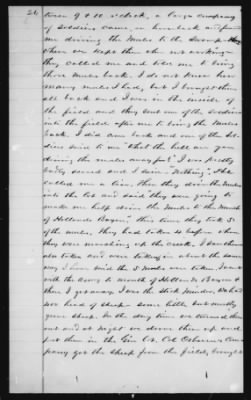 26
tween 9 & 10 o'clock, a large company
of Soldiers came in here back and found
me driving the Mules to the Swamp
where we kept them when not working
they called me and told me to bring
those mules back. I do not know how
many mules I had, but I brought them
all back and I was on the inside of
the field and they sent one of the Soldiers
into the field after me to bring the Mules
back. I did come back and one of the Sol-
diers said to me "What the hell are you
driving the mules away for?" I was pretty
badly scared and I said "Nothing". He
called me a liar. Then they drove them
into the lot and said they were going to
make me help drive the Mules to the Mouth
of Hollands Bayou. This time they took 5
of the mules. They had taken 4 before when
they were marching up the creek. I saw them
also taken and were taken in about the same
way I have said the 5 Mules were taken. I went
with the Army to mouth of Hollands Bayou &
then I got away. I was the Stock Minder. We had
one hind of sheep - some cattle but mostly
your sheep. In the day time we turned them
out and at night we drove them up and
put them in the Gin lot. Col Osborne's Com-
pany got the Sheep from the field, brought